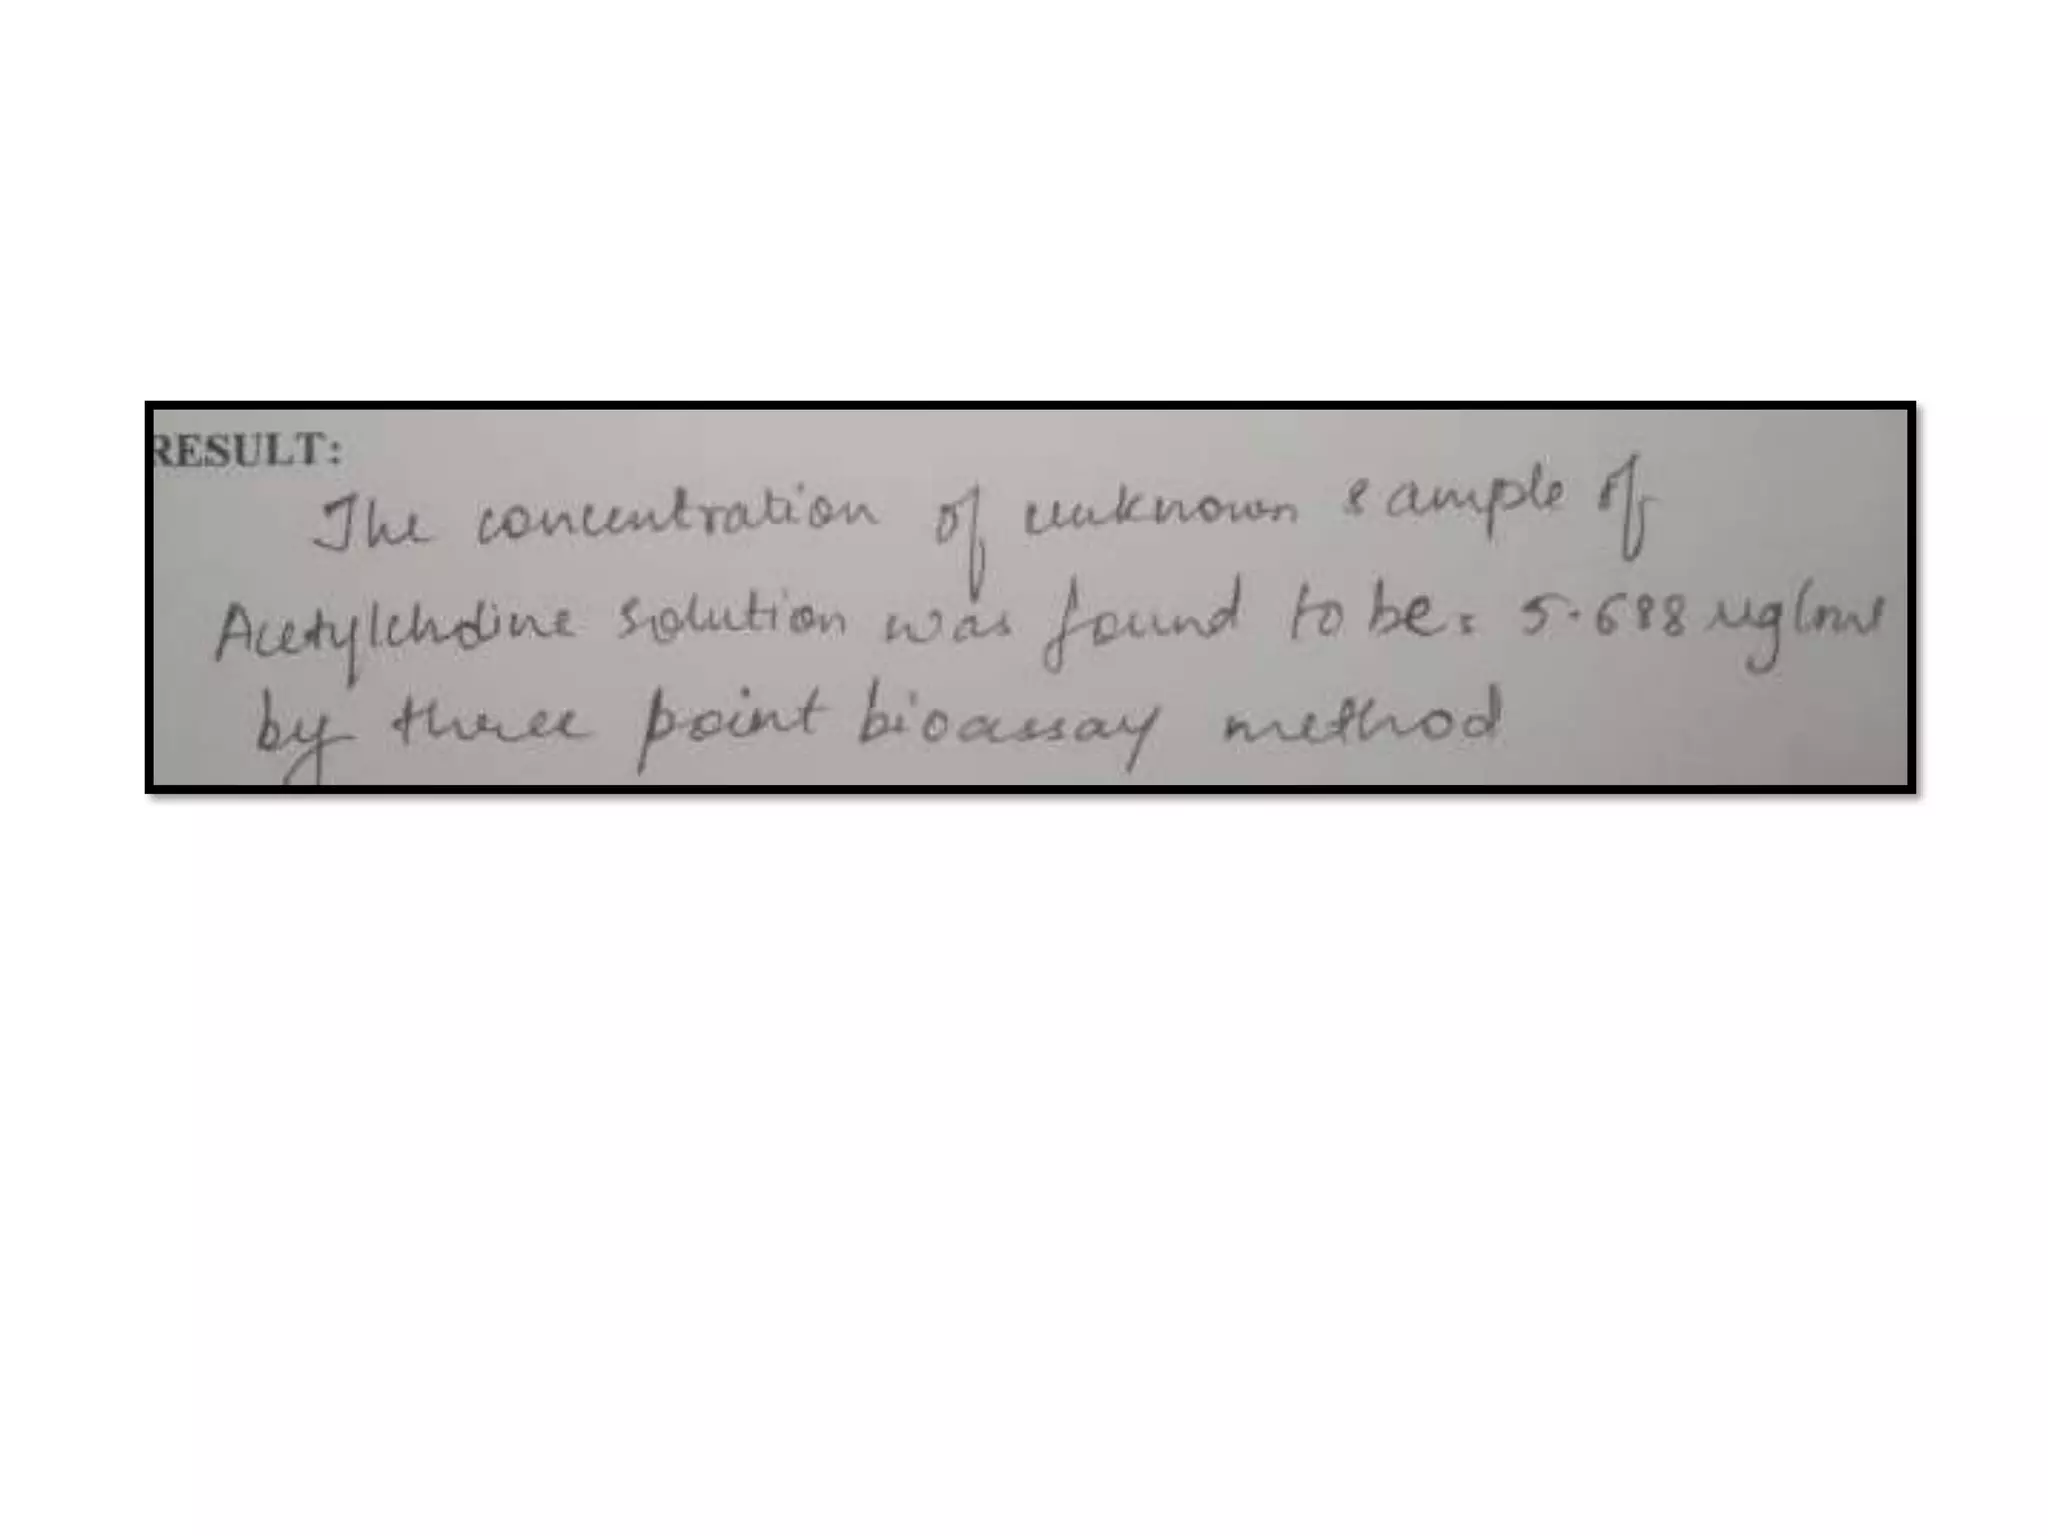 RESULT:
The concentration of unknown sample of
Acetylcholine solution was found to be = 5.688 ug/ml
by three point bioassay method